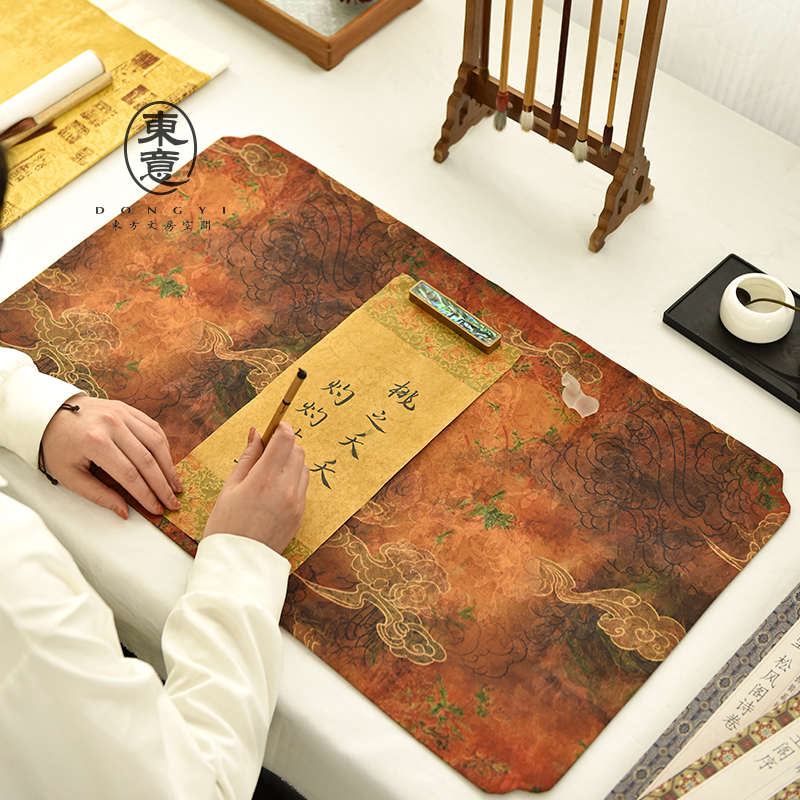 東意
DONGYI
東方文房空間
桃之夭夭
灼灼
松风阁诗卷
阁序